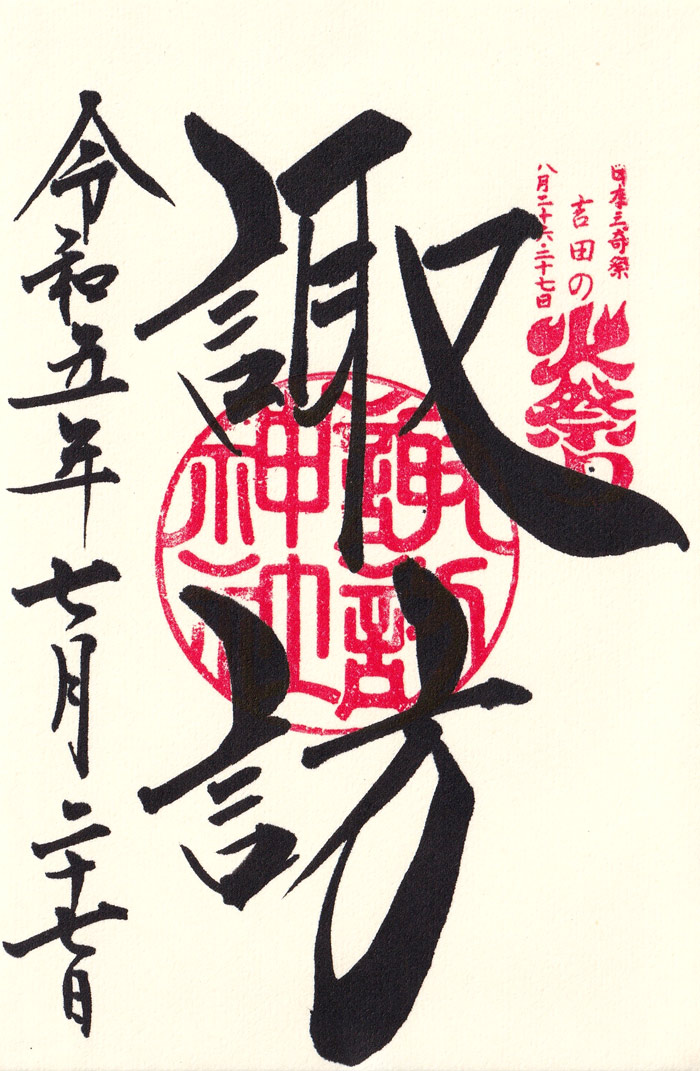 日本三奇祭
吉田の
火祭り
八月二十六・二十七日
諏訪
諏訪
神社
令和五年七月二十七日